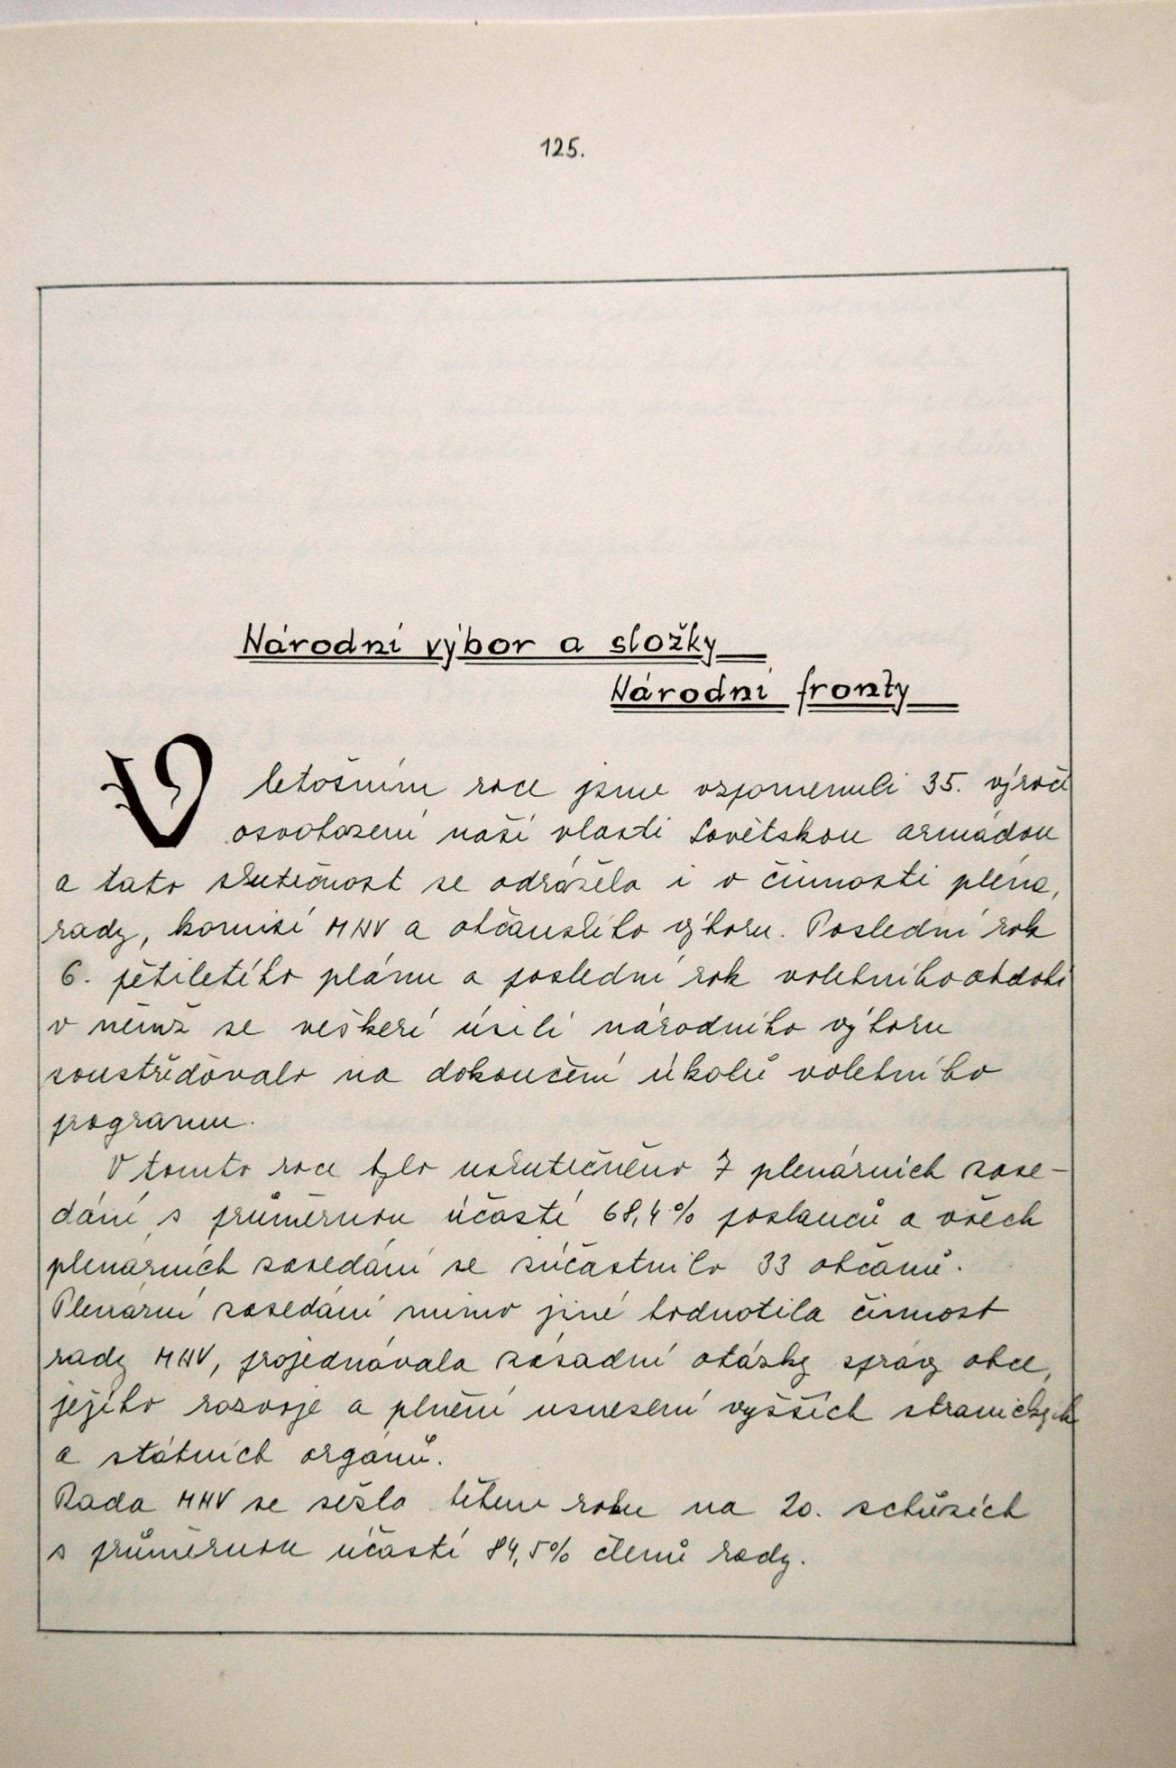 125.
Národní výbor a složky
Národní fronty
V letošním roce jsme vzpomenuli 35. výročí
osvobození naší vlasti Sovětskou armádou
a tato skutečnost se odrážela i v činnosti pléna,
rady, komisí MNV a občanského výboru. Poslední rok
6. pětiletého plánu a poslední rok volebního období
v němž se veškeré úsilí národního výboru
soustřeďovalo na dokončení úkolů volebního
programu.
V tomto roce bylo uskutečněno 7 plenárních zase-
dání s průměrnou účastí 68,4% poslanců a všech
plenárních zasedání se zúčastnilo 33 občanů.
Plenární zasedání mimo jiné hodnotila činnost
rady MNV, projednávala zásadní otázky správy obce,
jejího rozvoje a plnění usnesení vyšších stranických
a státních orgánů.
Rada MNV se sešla během roku na 20. schůzích
s průměrnou účastí 84,5% členů rady.